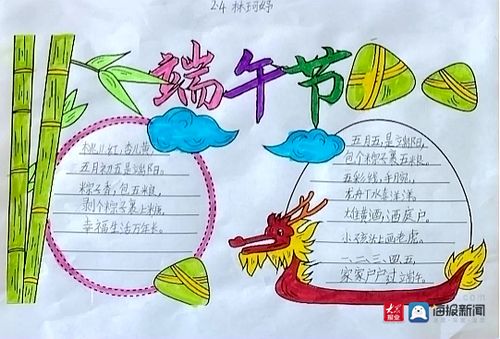 2.4 林珂妤
端午节
桃儿红,杏儿黄,
五月初五是端阳。
粽子香,包五米,
剥个粽子裹上糖,
幸福生活万年长。
五月五,是端阳。
包个粽子裹五米,
五彩线,手腕,
龙舟下水喜洋洋。
雄黄酒,洒庭户。
小孩头上画老虎。
一、二、三、四、五,
家家户户过端午。
大众报业
海报新闻